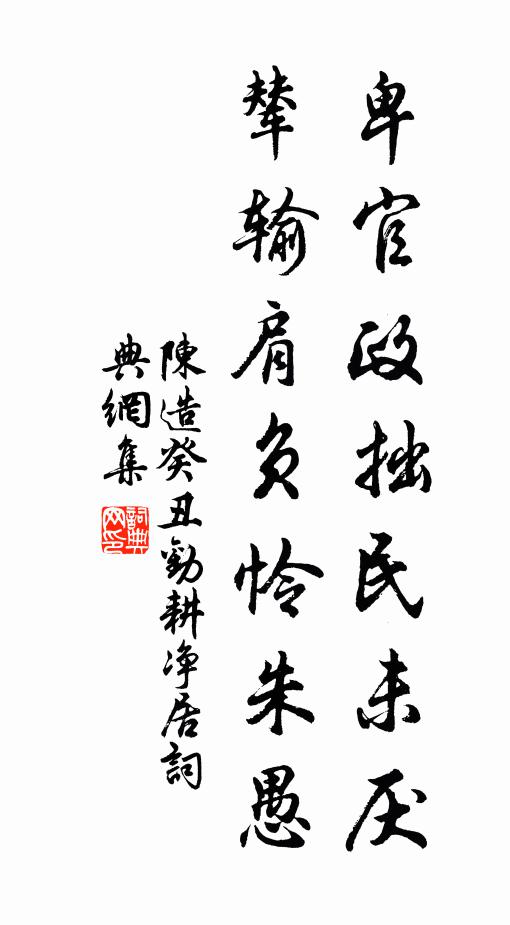 卑官政拙民未厌
辇输肩负怜朱愚
陳造癸丑勸耕净居詞
典網集
詞典
网印